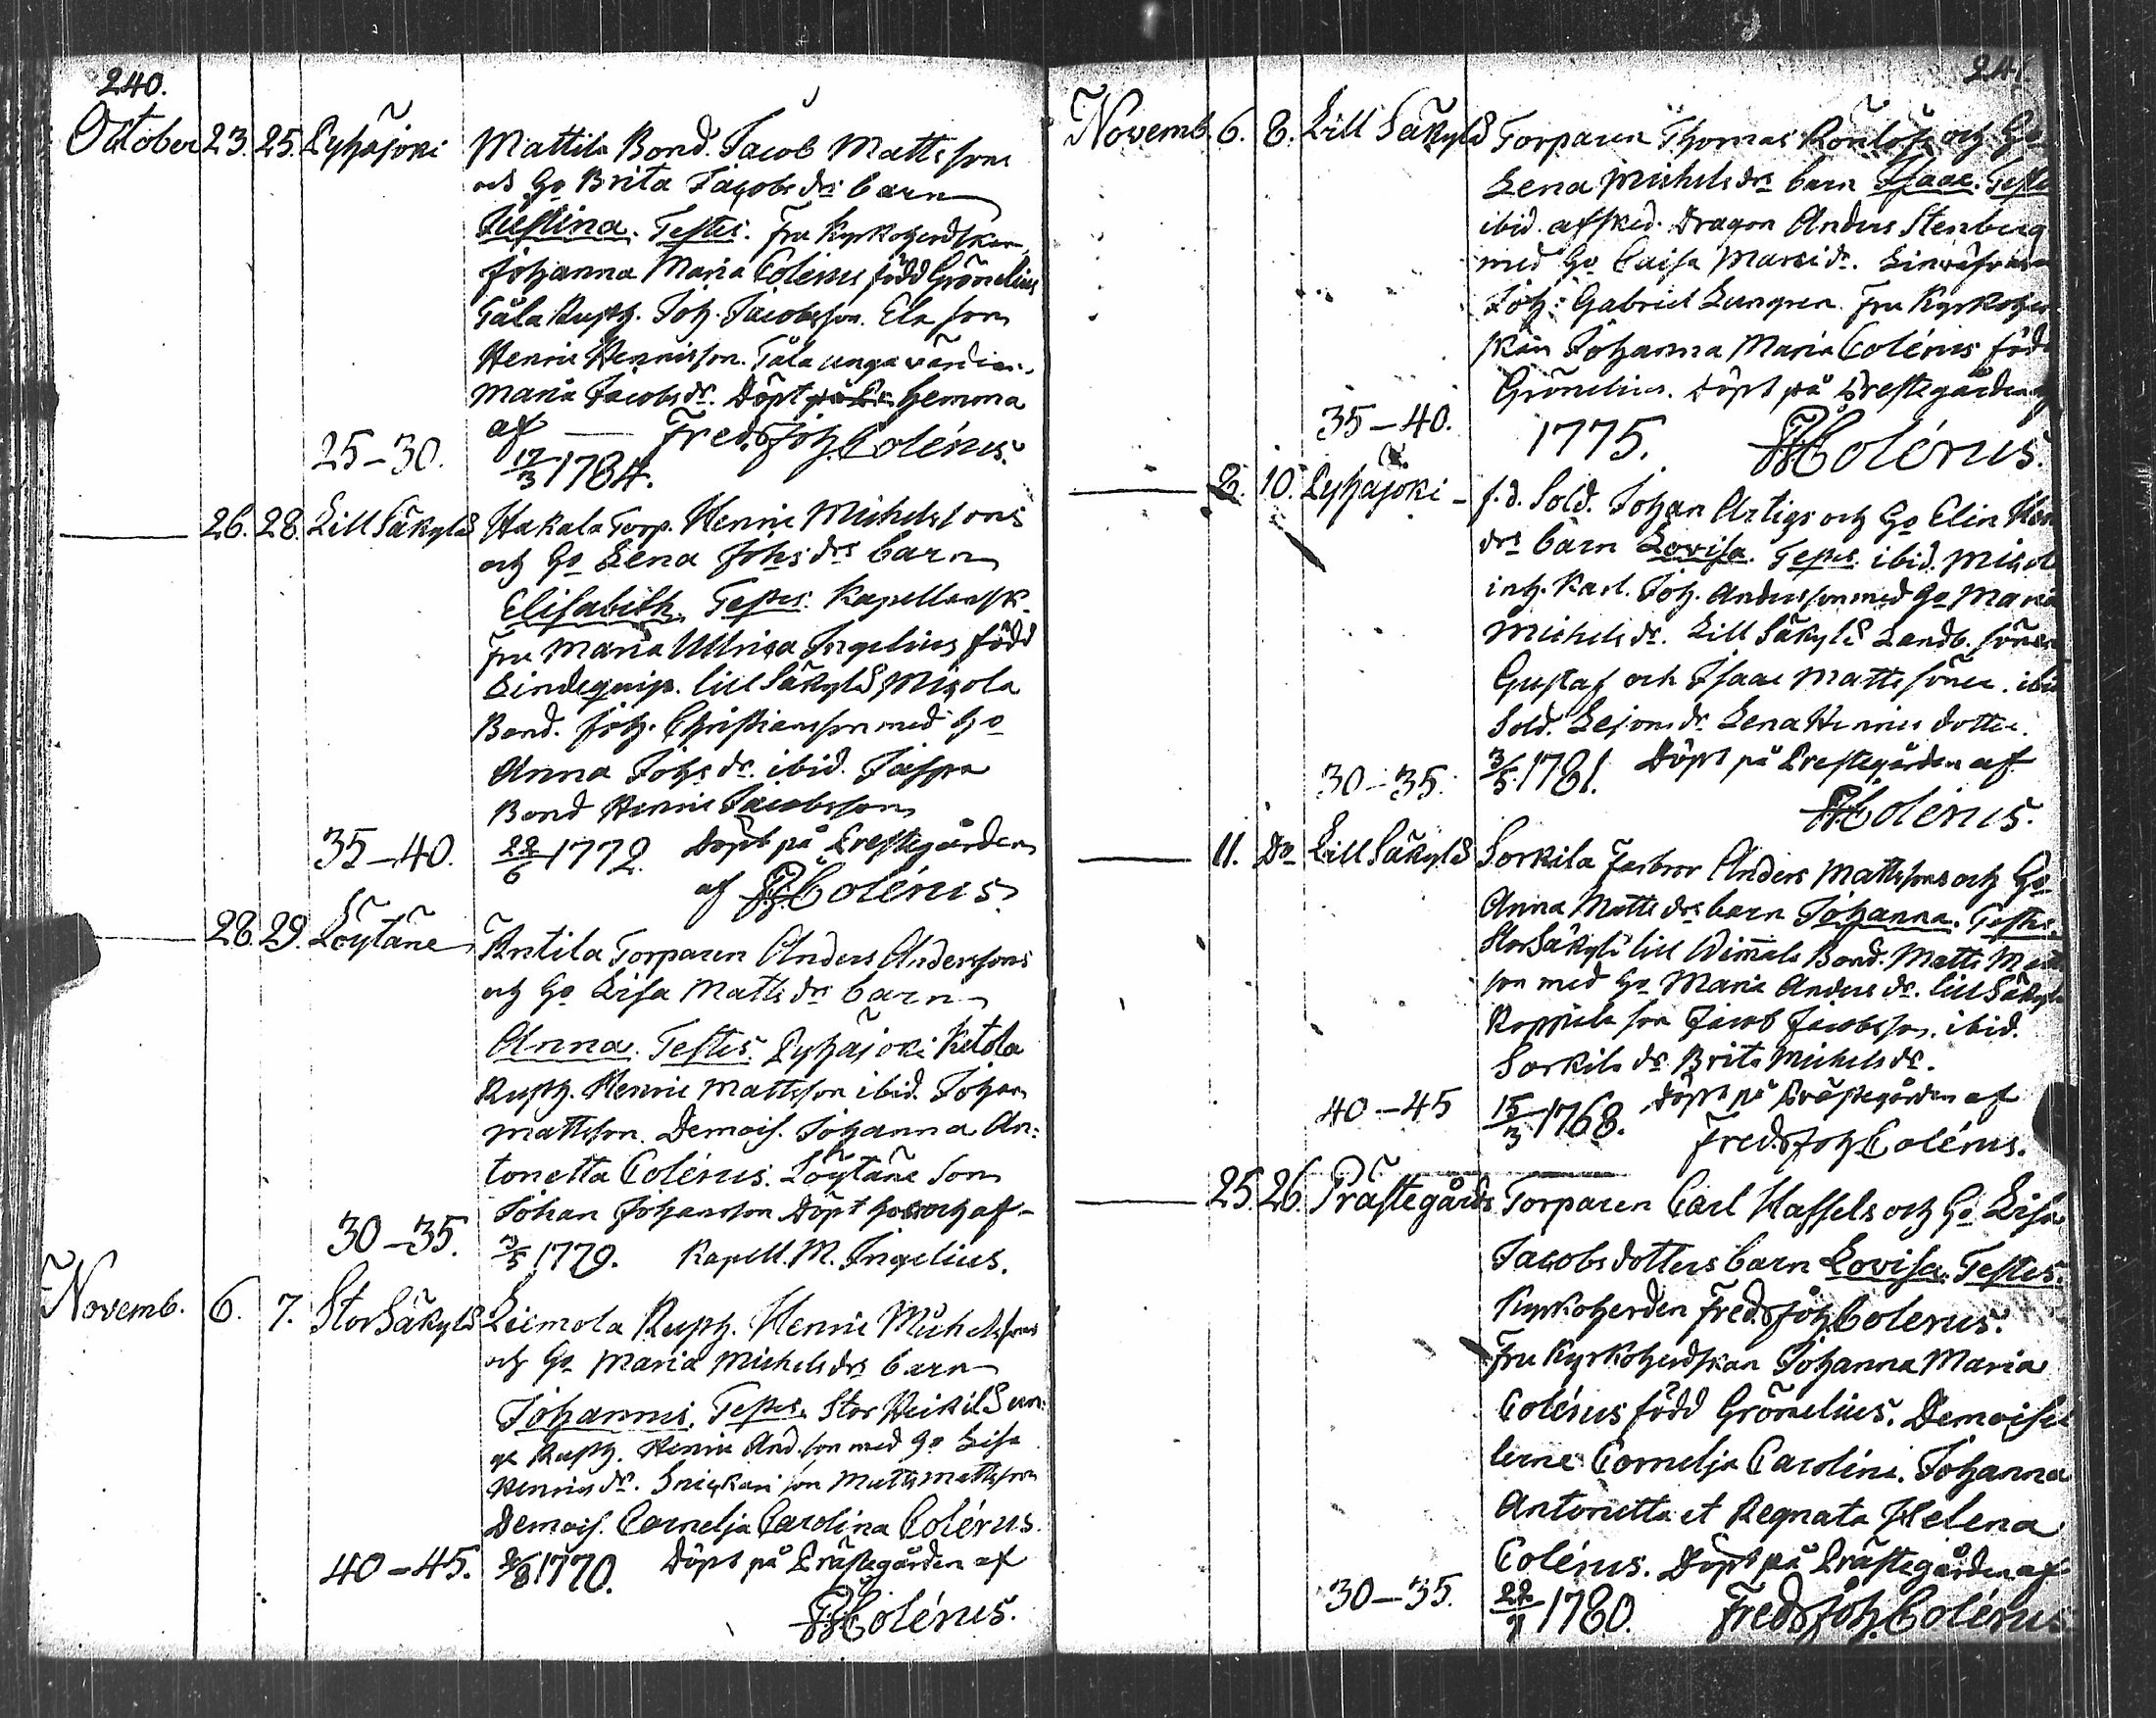 240.
October 23. 25. Pyhäjoki Mattila Bond. Jacob Mattssons
och Ho Brita Jacobs drs barn
Justina. Testes. Fru Kyrkoherdskan
Johanna Maria Colérus född Grönelius
Tåla Rusth. Joh. Jacobsson. Ela son
Henric Henricsson. Tåla unga värdin.
Maria Jacobs dr. Döpt hemma
af — Fred. Joh. Colérus.
25–30. 12/3 1784.
— 26. 28. Lill Säkylä Hakala Torp. Henric Michelssons
och Ho Lena Johs drs barn
Elisabeth. Testes. Kapellansk.
fru Maria Ullrica Ingelius född
Lindequist. lill Säkylä Misola
Bond. Joh. Christiansson med Ho
Anna Johs dr. ibid. Jaspa
Bond Henric Jacobsson
35–40. 22/6 1772. Döpt på Prestegården
af FJColérus.
— 28. 29. Löytäne Antila Torparen Anders Anderssons
och Ho Lisa Matts drs barn
Anna. Testes. Pyhäjoki Ketola
Rusth. Henric Mattsson ibid. Johan
Mattsson. Demois. Johanna An:
tonetta Colérus. Löytäne son
Johan Johansson Döpt hos och af
30–35. 3/5 1779. Kapell. M. Ingelius.
Novemb. 6. 7. StorSäkylä Liimola Rusth. Henric Michelssons
och Ho Maria Michels drs barn
Johannes. Testes. Stor Heikilä un:
ge Rusth. Henric And.son med Ho Lisa
Henrics dr. Snickari son Matts Mattsson
Demois. Cornelja Carolina Colérus.
40–45. 1770. Döpt på Prästegården af
FJColérus.
241
Novemb. 6. 8. Lill Säkylä Torparen Thomas och Ho
Lena Michels drs barn Isaac. Testes
ibid. afsked. Dragon Anders Stenberg
med Ho Caisa Marci dr.
Joh: Gabriel Lungren. Fru Kyrkoher
skan Johanna Maria Colérus född
Grönelius. Döpt på Prestegården af
35–40. 1775. FJColérus.
— 8. 10. Pyhäjoki – f.d. Sold. Johan Artigs och Ho Elin Hen
drs barn Lovisa. Testes. ibid.
inh. Karl. Joh. Andersson med Ho Maria
Michels dr. Lill Säkylä Landb. söner
Gustaf och Isaac Matts söner. ibid
Sold. Lejons dr. Lena Henrics dotter.
30–35. 3/5 1781. Döpt på Prestegården af
FJColérus.
— 11. Do Lill Säkylä Sorkila Farbror Anders Mattssons och Ho
Anna Matts drs barn Johanna. Testes.
StorSäkylä lill Wimala Bond. Matts Matts
son med Ho Maria Anders dr. lill Säkylä
Koppila son Jacob Jacobsson. ibid.
Sorkila dr Brita Michels dr.
40–45 15/3 1768. Döpt på Prästegården af
Fred. Joh. Colérus.
— 25. 26. Prästegårds Torparen Carl Hassels och Ho Lisa
Jacobs dotters barn Lovisa. Testes.
Kyrkoherden Fred. Joh. Colérus.
Fru Kyrkoherdskan Johanna Maria
Colérus född Grönelius. Demoisel
lerne Cornelja Carolina. Johanna
Antonetta et Regnata Helena
Colérus. Döpt på Prästegården af
30–35. 1780. Fred. Joh. Colérus